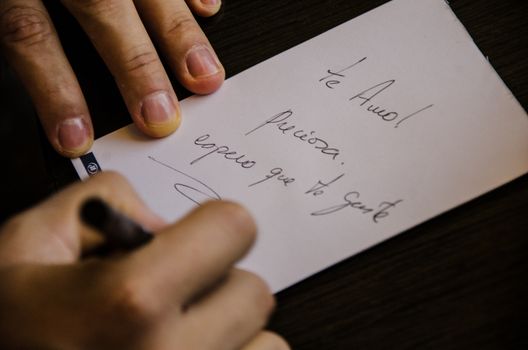 Te Amo!
preciosa.
espero que te guste